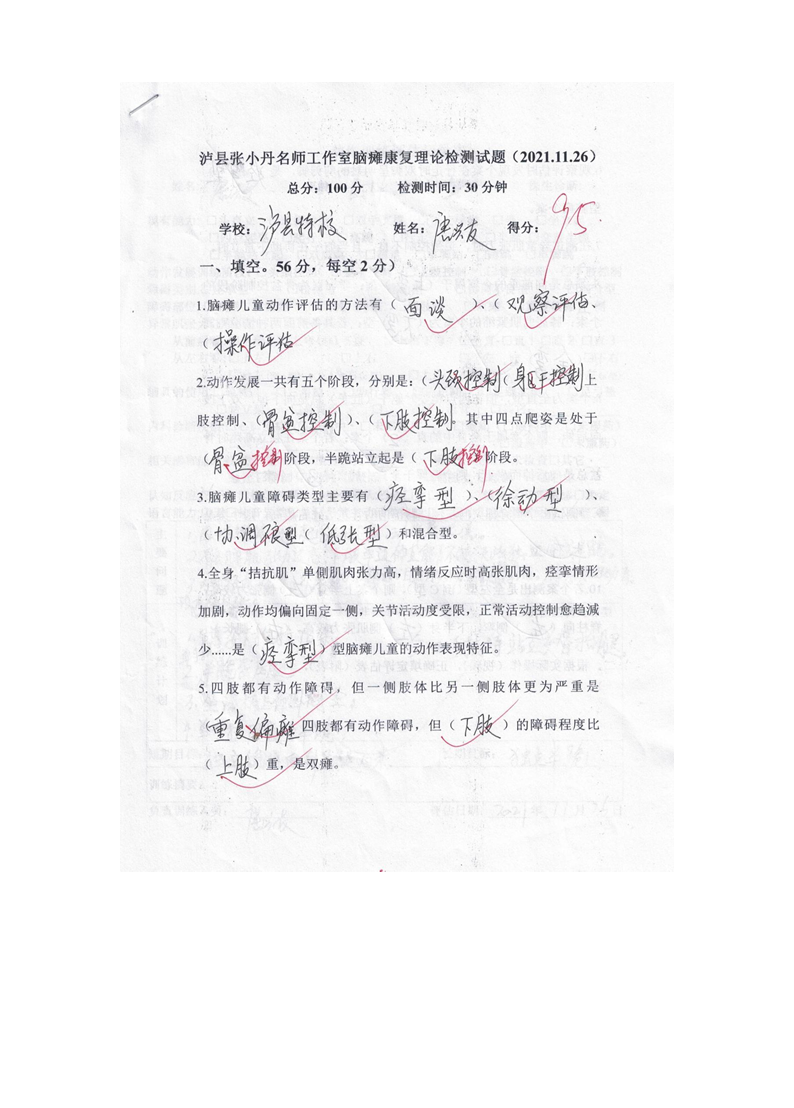 泸县张小丹名师工作室脑瘫康复理论检测试题（2021.11.26）
总分：100 分 检测时间：30 分钟
学校：泸县特校 姓名：唐兴友 得分：95
一、填空。56 分，每空 2 分）
1.脑瘫儿童动作评估的方法有（面谈）、（观察评估、
（操作评估
2.动作发展一共有五个阶段，分别是：（头颈控制（身躯干控制上
肢控制、（骨盆控制）、（下肢控制。其中四点爬姿是处于
（骨盆控制阶段，半跪站立起是（下肢控制阶段。
3.脑瘫儿童障碍类型主要有（痉挛型）、（徐动型）、
（协调碍型（低张型）和混合型。
4.全身“拮抗肌”单侧肌肉张力高，情绪反应时高张肌肉，痉挛情形
加剧，动作均偏向固定一侧，关节活动度受限，正常活动控制愈趋减
少......是（痉挛型）型脑瘫儿童的动作表现特征。
5.四肢都有动作障碍，但一侧肢体比另一侧肢体更为严重是
（重复偏瘫 四肢都有动作障碍，但（下肢）的障碍程度比
（上肢）重，是双瘫。